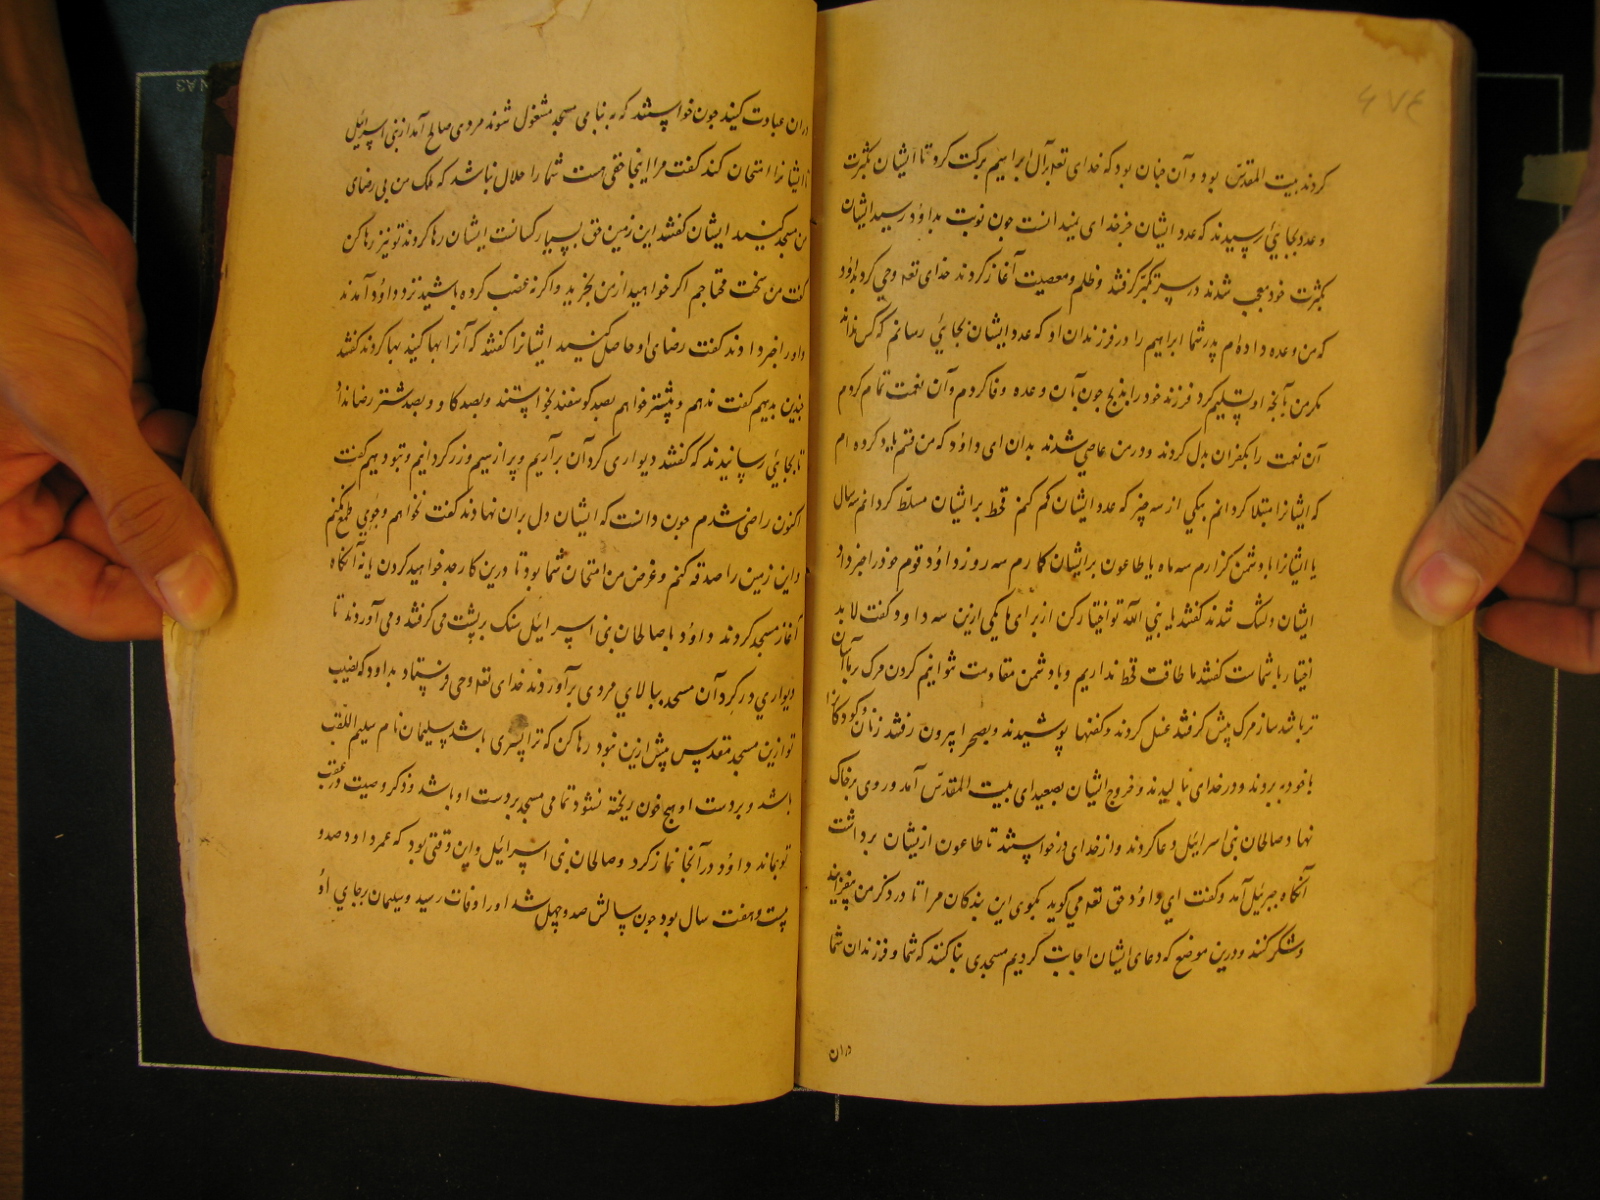 ۴۷۶
کردند بیت المقدس بود و آن چنان بود که خدای تعه برآل ابراهیم برکت کرد تا ایشان بکثرت
و عدد بجایئ رسیدند که عدد ایشان جز خدای نمیدانست جون نوبت بداؤد رسید ایشان
بکثرت خود معجب شدند در سر تکبر گرفتند و ظلم و معصیت آغاز کردند خدای تعه وحی کرد بداؤد
که من وعده داده ام پدر شما ابراهیم را در فرزندان او که عدد ایشان بجایئ رسانم که کس نداند
مکر من بآنچه او تسلیم کرد فرزند خود را بذبح جون بآن وعده وفا کردم و آن نعمت تمام کردم
آن نعمت را بکفران بدل کردند و در من عاصی شدند بدان ای داؤد که من قسم یاد کرده ام
که ایشانرا مبتلا کردانم بیکی از سه چیز که عدد ایشان کم کنم قحط بر ایشان مسلط کردانم سه سال
یا ایشانرا با دشمن کذارم سه ماه یا طاعون بر ایشان کمارم سه روز داؤد قوم خود را خبر داد
ایشان دلتنک شدند کفتند یا نبی الله تو اختیار کن از برای ما یکی ازین سه داود کفت لابد
اختیار با شماست کفتند ما طاقت قحط نداریم و با دشمن مقاومت نتوانیم کردن مرک بر ما آسان
تر باشد ساز مرک پیش کرفتند غسل کردند و کفنها پوشیدند و بصحرا بیرون رفتند زنان و کودکانرا
با خود ببردند و در خدای نالیدند و خروج ایشان بصعیدای بیت المقدس آمد و روی برخاک
نهاد و صالحان بنی اسرائیل دعا کردند و از خدای درخواستند تا طاعون ازیشان برداشت
آنکاه جبرئیل آمد و کفت ای داؤد حق تعه می کوید بکوی این بندکان مرا تا در ذکر من بیفزایند
و شکر کنند و درین موضع که دعای ایشان اجابت کردیم مسجدی بنا کنند که شما و فرزندان شما
دران
دران عبادت کنید جون خواستند که به بنای مسجد مشغول شوند مردی صالح آمد از بنی اسرائیل
تا ایشانرا امتحان کند کفت مرا اینجا حقی هست شما را حلال نباشد که ملک من بی رضای
من مسجد کنید ایشان کفتند این زمین حق بسیار کسانست ایشان رها کردند تو نیز رها کن
کفت من سخت محتاجم اکر خواهید از من بخرید و اکر نه غصب کرده باشید نزد داؤد آمدند
و او را خبر دادند کفت رضای او حاصل کنید ایشانرا کفتند که آنرا بها کنید بها کردند کفتند
بدین بدیهم کفت ندهم و بیشتر خواهم بصد کوسفند بخواستند و بصد کاو و بصد شتر رضا نداد
تا بجایئ رسانیدند که کفتند دیواری کرد آن برآریم و پر از سیم و زر کردانیم و بتو دهیم کفت
اکنون راضی شدم جون دانست که ایشان دل بران نهادند کفت نخواهم وجوی طمع نکنم
و این زمین را صدقه کنم و غرض من امتحان شما بود تا درین کار جد خواهید کردن یا نه آنکاه
آغاز مسجد کردند داؤد با صالحان بنی اسرائیل سنک بر پشت می کرفتند و می آوردند تا
دیواری در کرد آن مسجد ببالای مردی برآوردند خدای تعه وحی فرستاد بداود که نصیب
تو ازین مسجد مقدس پیش ازین نبود رها کن که ترا پسری باشد سلیمان نام سلیم القلب
باشد و بردست او هیچ خون ریخته نشود تمامی مسجد بردست او باشد و ذکر وصیت در عقب
تو بماند داؤد در آنجا نماز کرد و صالحان بنی اسرائیل و این وقتی بود که عمر داود صد و
بیست و هفت سال بود جون سالش صد و چهل شد او را وفات رسید و سلیمان برجای او